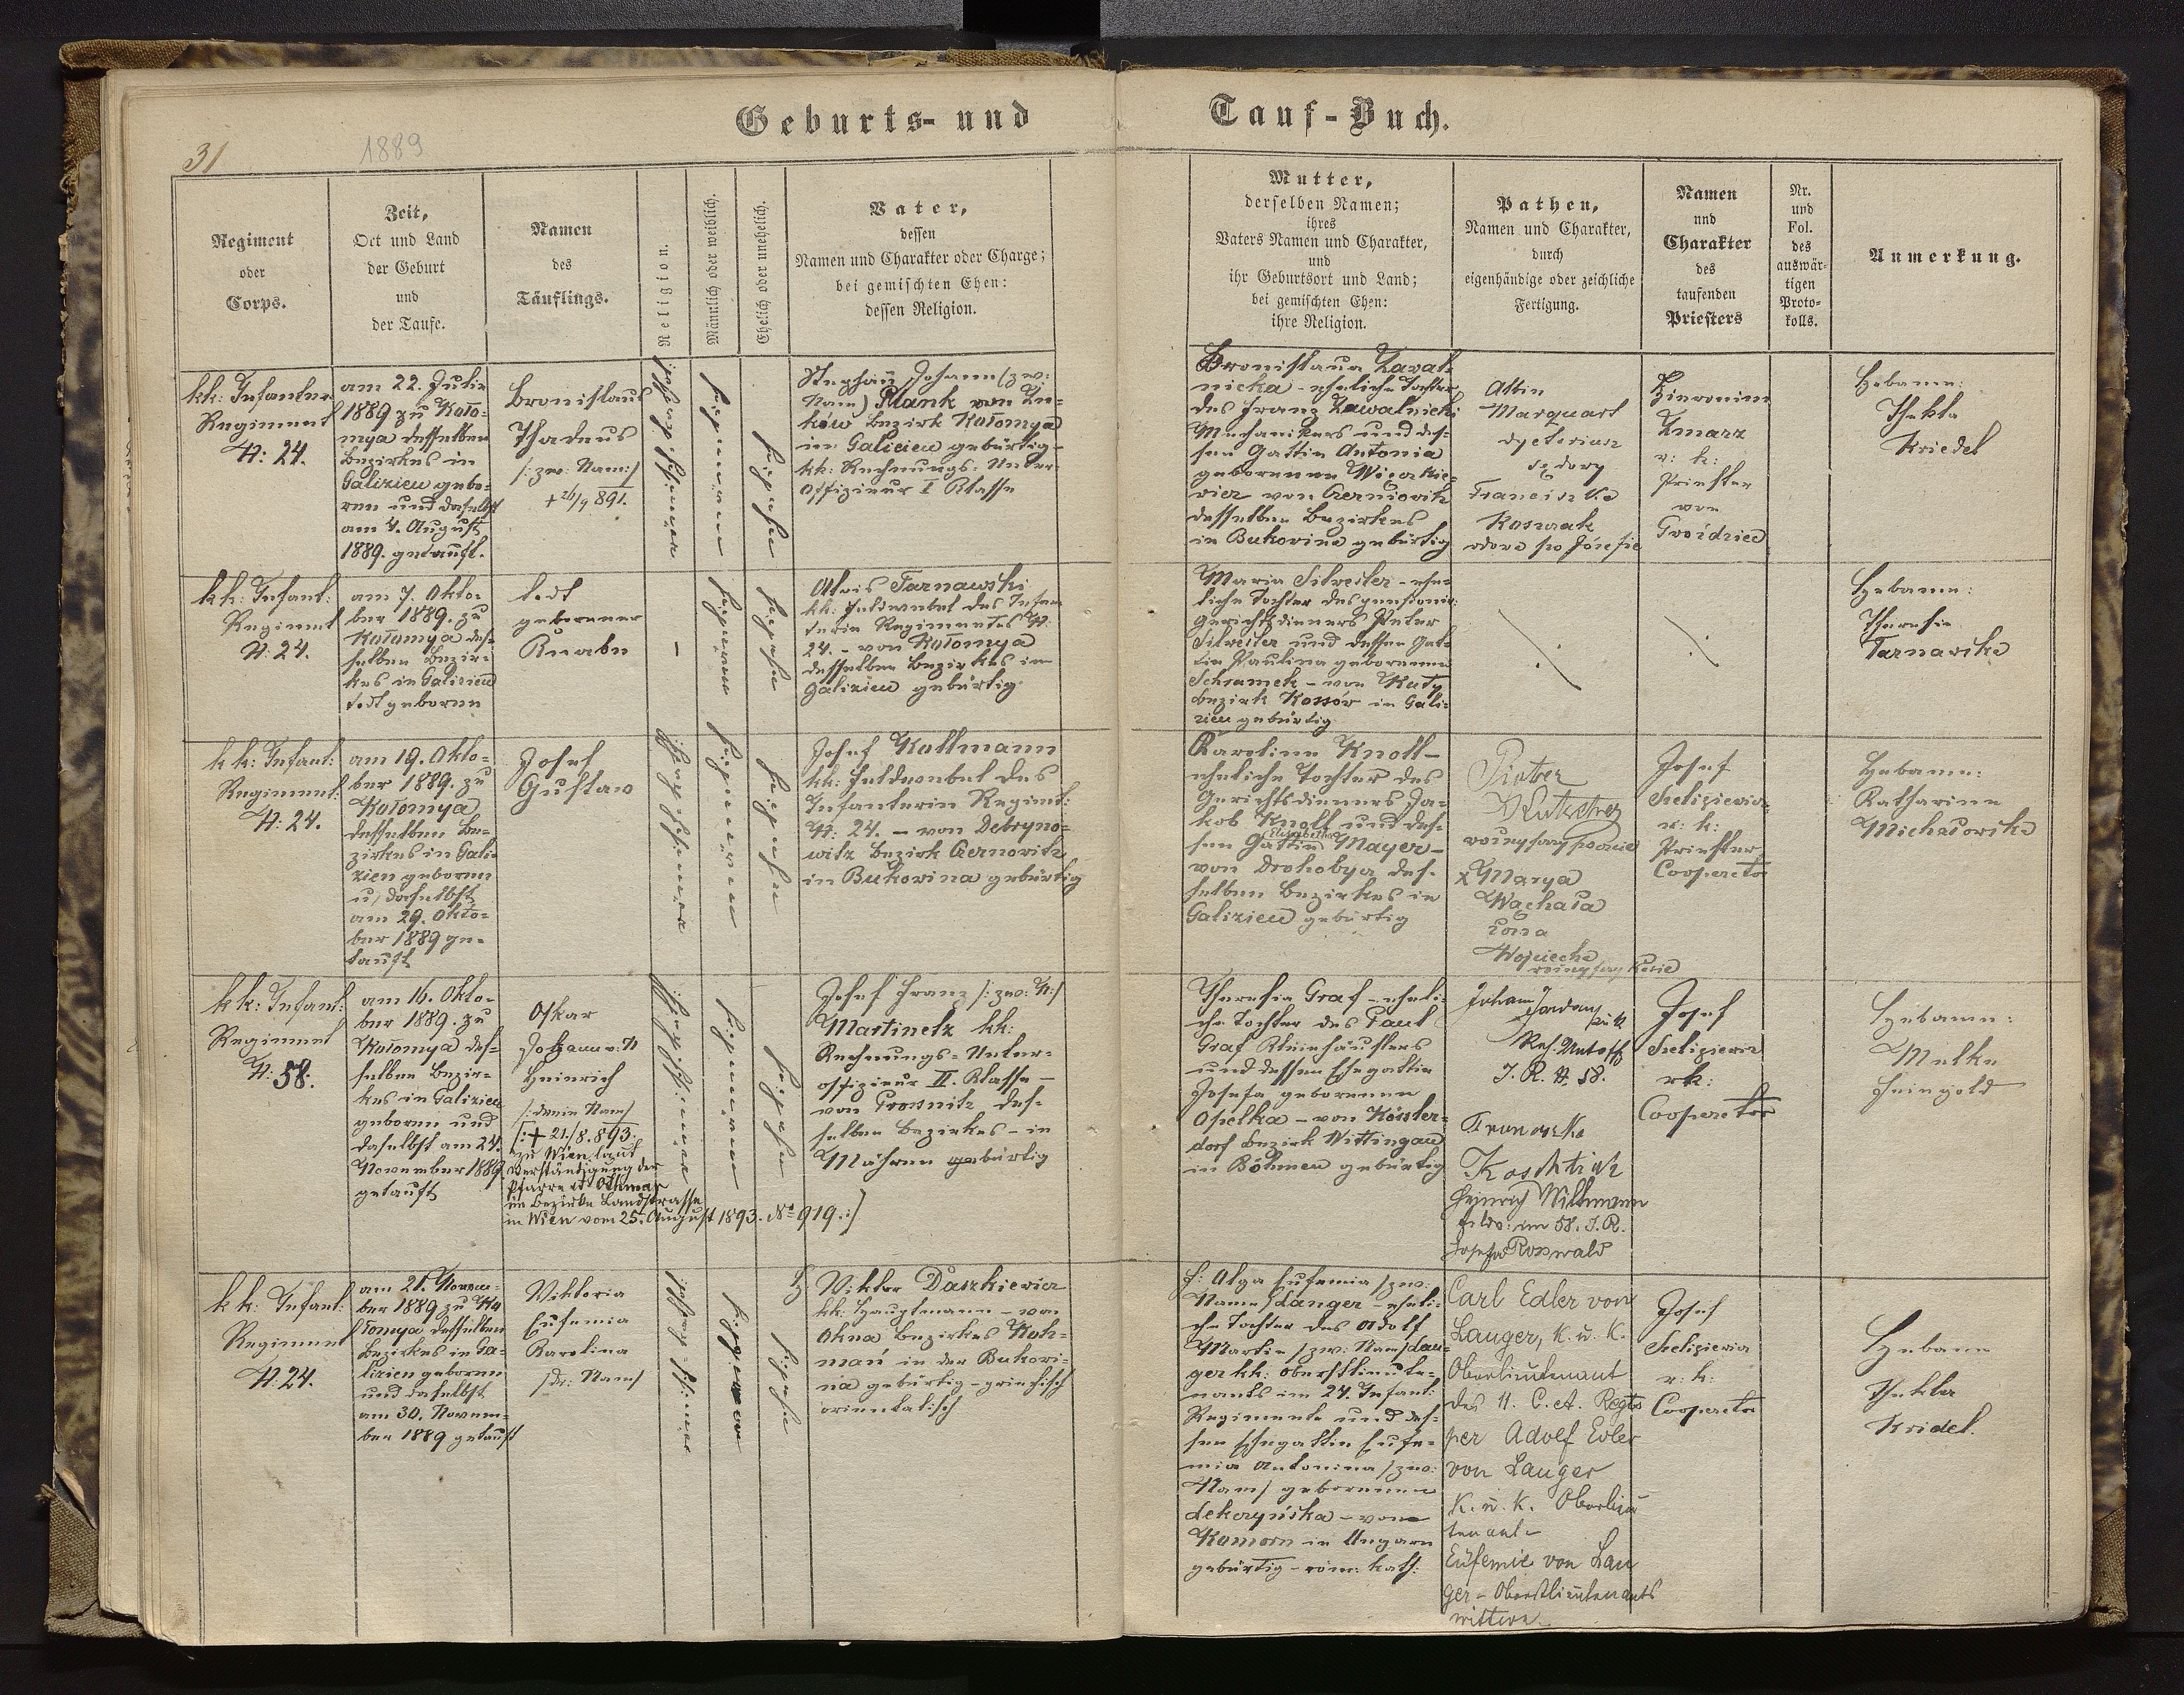 Geburts- und Tauf-Buch.
31
1889
Regiment
oder
Corps.
Zeit,
Ort und Land
der Geburt
und
der Taufe.
Namen
des
Täuflings.
Religion.
Männlich oder weiblich.
Ehelich oder unehelich.
Vater,
dessen
Namen und Charakter oder Charge;
bei gemischten Ehen:
dessen Religion.
Mutter,
derselben Namen;
ihres
Vaters Namen und Charakter,
und
ihr Geburtsort und Land;
bei gemischten Ehen:
ihre Religion.
Pathen,
Namen und Charakter,
durch
eigenhändige oder zeichliche
Fertigung.
Namen
und
Charakter
des
taufenden
Priesters
Nr.
und
Fol.
des
auswär-
tigen
Proto-
kolls.
Anmerkung.
kk: Infanter.
Regiment
N: 24.
am 22. Julie
1889 zu Koło-
mya desselben
Bezirkes in
Galizien gebo-
ren und daselbst
am 4. August
1889. getauft.
Bronislaus
Thadeus
/: zw: Nam:/
+ 26/9 891.
Johann (zw:
Nam) Plank von
Bezirk Kołomya
in Galicien gebürtig -
kk: Rechnungs-Unter-
offizieur I Klasse
Bronislaua Zawal-
nicka - eheliche Tochter
des Franz Zawalnicki
Mechanikers und des-
sen Gattin Antonia
geborenen
von Czerniovitz
desselben Bezirkes
in Bukovina gebürtig
Marquart
Franciszka
Koszczak
wdowa po Józefie
Hieronim
Kmarz
r: k:
Priester
von
Gwoździec
Hebame:
Thekla
Kriedel
kk: Infant:
Regiment
N: 24.
am 7. Okto-
ber 1889. zu
Kołomya des-
selben Bezir-
kes in Galizien
todt geboren
todt
geborener
Knabe
-
Alois Tarnawski
kk: Feldwebel des Infan
terie Regimentes N:
24. - von Kołomya
desselben Bezirkes in
Galizien gebürtig
Maria Silvester - ehe-
liche Tochter des pensionir:
Gerichtsdieners Peter
Silvester und dessen Gat-
tin Paulina geborenen
Schramek - von Kuty
Bezirk Kossów in Gali-
zien gebürtig
Hebame:
Theresia
Tarnawska
kk: Infant:
Regiment:
N: 24.
am 19. Okto-
ber 1889. zu
Kołomya
desselben Be-
zirkes in Gali-
zien geboren
u. daselbst
am 29. Okto-
ber 1889 ge-
tauft
Josef
Gustav
Josef Kollmann
kk: Feldwebel des
Infanterie Regimt:
N: 24. - von
witz Bezirk Czernovitz
in Bukovina gebürtig
Karoline Knoll -
eheliche Tochter des
Gerichtsdieners Ja-
kob Knoll und des-
sen Gattin Elisabetha Mayer -
von Drohobycz des-
selben Bezirkes in
Galizien gebürtig
Piotr
x Marya
Wachała
żona
Wojciecha
Josef
r: k:
Priester
Cooperator
Hebame:
Katharine
Michałowska
kk: Infant:
Regiment
N: 58.
am 16. Okto-
ber 1889. zu
Kołomya des-
selben Bezir-
kes in Galizien
geboren und
daselbst am 24.
November 1889
getauft
Oskar
Johann v. N
Heinrich
/: drei Nam/
[:+ 21./8. 893
zu Wien laut
Verständigung der
Pfarre St Othmar
im Bezirke Landstrasse
in Wien vom 25. August 1893. No 919.:/
Josef Franz /: zw: N:/
Martinetz kk:
Rechnungs-Unter-
offizieur II. Klasse -
von Prossnitz des-
selben Bezirkes - in
Mähren gebürtig
Theresia Graf - eheli-
che Tochter des Paul
Graf Kleinhäuslers
und dessen Ehegattin
Josefa geborenen
Opelka - von
dorf Bezirk Wittingau
in Böhmen gebürtig
Johann Jordan
Rch. Untoff
I. R. N. 58.
Heinrich Willmann
Feldw: im 58. I. R.
Josefa Roswald
Josef
rk:
Cooperator
Hebame:
Malka
Feingold
kk: Infant:
Regiment
N: 24.
am 21. Novem-
ber 1889 zu Ko
łomya desselben
Bezirkes in Ga-
lizien geboren
und daselbst
am 30. Novem-
ber 1889 getauft
Viktoria
Eufemia
Karolina
/dr: Nam/
H: Viktor Daszkiewicz
kk: Hauptmann - von
Okna Bezirkes Kotz-
mań in der Bukowi-
na gebürtig - griechisch
orientalisch
F: Olga Eufemia /zw:
Name/ Langer - eheli-
che Tochter des Adolf
Martin /zw: Nam/ Lan-
ger kk: Oberstlieute-
nants im 24. Infant:
Regimente und des-
sen Ehegattin Eufe-
mia Antonina /zw:
Nam/ geborenen
Lekczyńska - von
Komorn in Ungarn
gebürtig - röm: kath:
Carl Edler von
Langer, k. u. k.
Oberlieutenant
des 11. C. A. Regts
per Adolf Edler
von Langer
k. u. k. Oberlieu
tenant -
Eufemie von Lan
ger - Oberstlieutenants
wittwe
Josef
r: k:
Cooperator
Hebame
Thekla
Kridel.